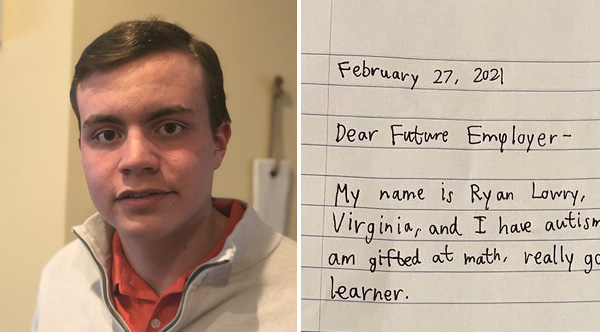 February 27, 2021
Dear Future Employer-
My name is Ryan Lowry,
Virginia, and I have autism
am gifted at math, really
learner.